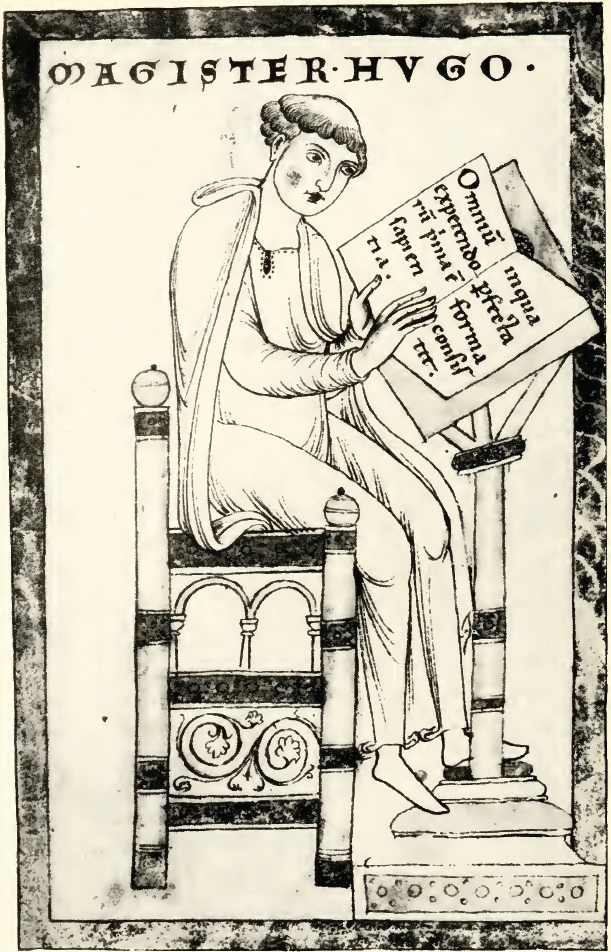 MAGISTER·HVGO·
Omniū
expetendo
rū pͥma ē
sapien
tia.
inqua
ꝑfecta
forma
consiſ
tit.